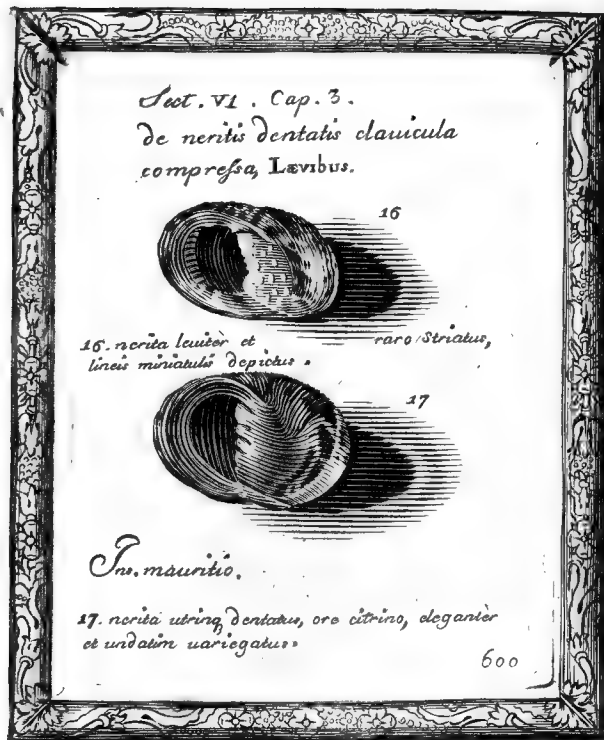 Sect. VI. Cap. 3.
de neritis dentatis clauicula
compreſsa, Lævibus.
16
16. nerita leuitèr et raro Striatus,
lineis miniatulis depictus.
17
Ins. mauritio.
17. nerita utrinq, dentatus, ore citrino, elegantèr
et undatim uariegatus.
600